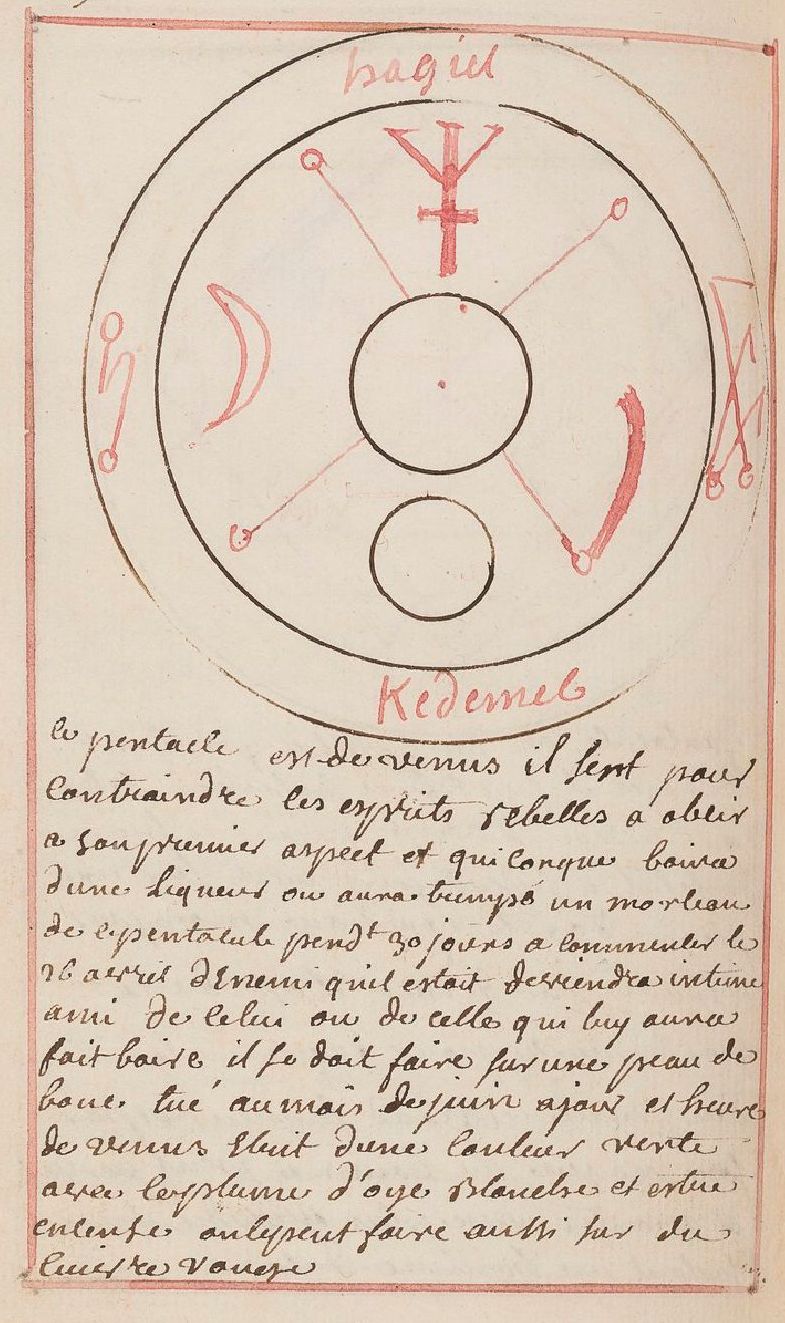 hagiel
Kédemel
le pentacle est de venus il sert pour
contraindre les esprits rebelles a obeir
a son premier aspect et quiconque boira
dune liqueur ou aura trempé un morceau
de ce pentacule pendt 30 jours a commencer le
26 avril d'Enemi quil estait deviendra intime
ami de celui ou de celle qui luy aura
fait boire il se doit faire sur une peau de
bouc tué au mois de juin a jour et heure
de venus Ebuit dune couleur verte
avec le plume d'oye blanche et estre
encensé on le peut faire aussi sur du
cuivre rouge